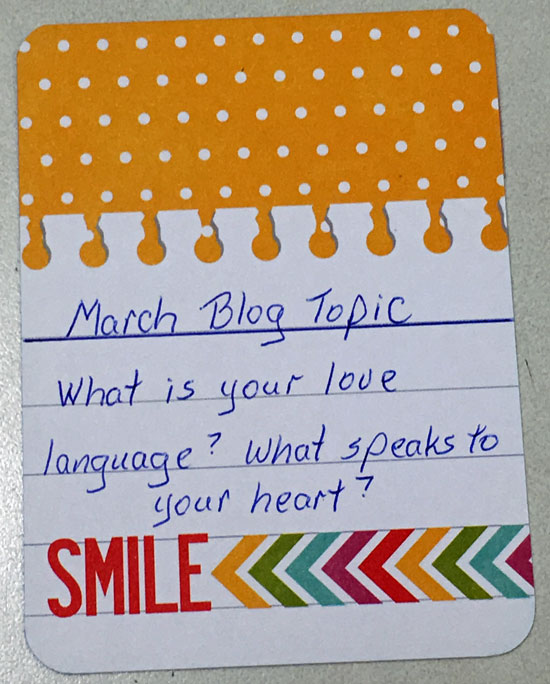 March Blog Topic
What is your love
language? What speaks to
your heart?
SMILE